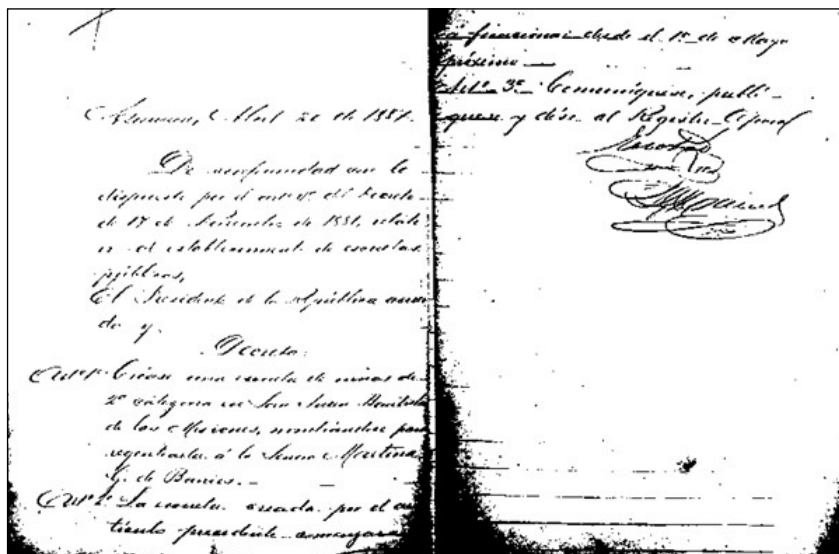 Asuncion, Abril 20 de 1887.
De conformidad con lo
dispuesto por el art. 4º del Decreto
de 17 de de 1881, relati
vo al establecimiento de escuelas
públicas,
El Presidente de la República acuer
da y
Decreta:
Artº 1º Créase una escuela de niñas de
2ª categoria en San Juan Bautista
de las Misiones, nombrándose para
regentearla á la Señora Martina
G. de Barrios. —
Artº 2º La escuela creada por el ar
tículo precedente comenzará
á funcionar desde el 1º de Mayo
próximo —
Artº 3º Comuníquese, publí-
quese y dése al Registro Oficial
Escobar